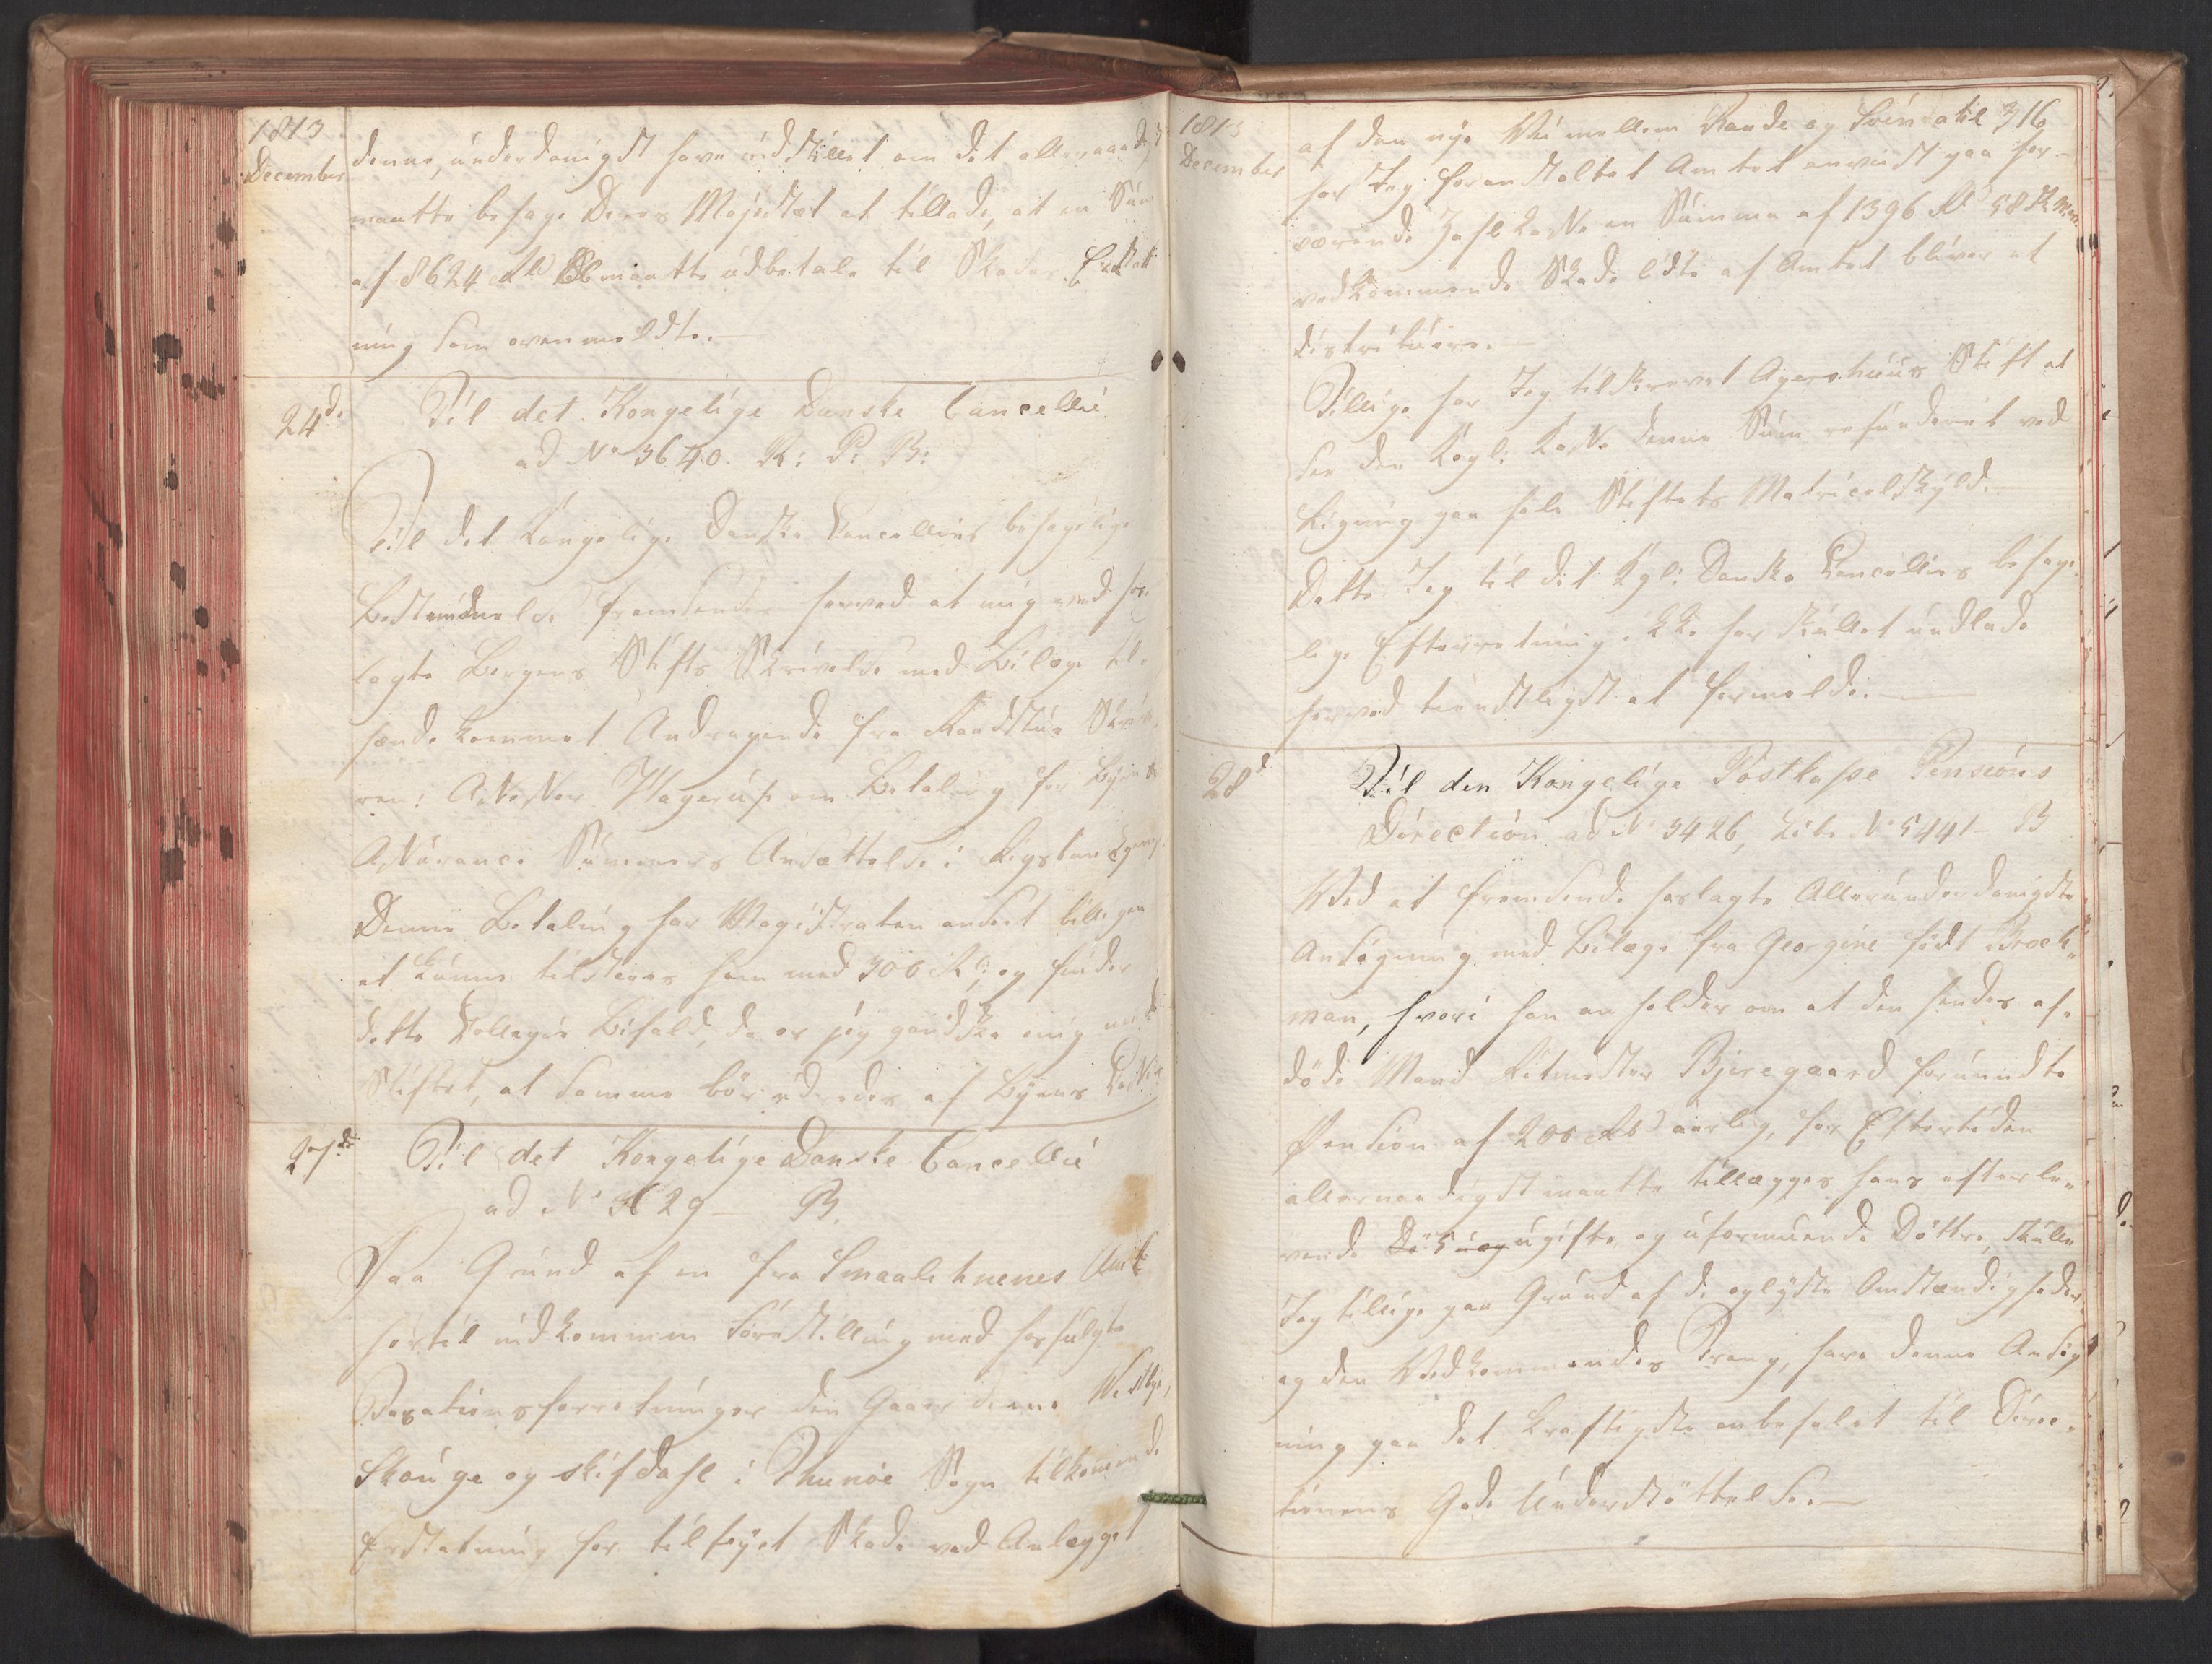 1813
December
denne, underdanigst have indstillet om det allernaadigst
maatte behage Deres Majestæt at tillade, at en Sum
af 8624 Rd maatte udbetales til Skades Erstatt
ning som ovenmeldte.
24d.
Til det Kongelige Danske Cancellie
ad No 3640. R: P: B:
Til det Kongelige Danske Cancellies behagelige
Bestemmelse fremsendes herved et mig med hos-
lagte Bergens Stifts Skrivelse med Bilage til-
hænde kommet Andragende fra Raadstue Skriv
ren: Assessor Hagerup om Betaling for Byens
Assurance Summers Ansættelse i Rigsbankpenge.
Denne Betaling har Magistraten anseet billigen
at kunne tilstaaes ham med 300 Rd: og finder
dette Collegie Bifald, da er jeg gandske enig med
Stiftet, at samme bör udredes af Byens Casse
27de
Til det Kongelige Danske Cancellie
ad No 29 – B.
Paa Grund af en fra Smaalehnenes Amt
hertil indkommen Forestilling med hosfulgte
Taxationsforretninger den Gaardene Westbye,
Skouge og Skifdahl i Thunöe Sogn tilkommende
Erstatning for tilföyet Skade ved Anlægget
1813
December
af den nye Vei mellem Raade og Svinsatil 316
har Jeg foranstaltet Amtet anviist paa her-
værende Zahlkasse en Summa af 1396 Rd 58 s
vedkommende Skadelidte af Amtet bliver at
distribuere.
Tillige har Jeg tilskrevet Agershuus Stift at
see den Kgl: Kasse denne Sum refunderet ved
Ligning paa hele Stiftets Matriculskyld.
Dette Jeg til det Kgl: Danske Cancellies behage
lige Efterretning ikke har skullet undlade
herved tienstligst at formelde.
28d
Til den Kongelige Postkasse Pensions
Direction ad No 3426, Litr No 5441 – B
Ved at fremsende hoslagte Allerunderdanigste
Ansögning med Bilage fra Georgine födt Brock-
man, hvori hun anholder om at den hendes af-
döde Mand Ritmester Bjeregaard forundte
Pension af 200 Rd aarlig, for Eftertiden
allernaadigst maatte tillægges hans efterle-
vende ugifte og uformuende Döttre, skulle
Jeg tillige paa Grund af de oplyste Omstændigheder
og den Vedkommendes Trang, have denne Ansög
ning paa det kraftigste anbefalet til Direc-
tionens Gode Understöttelse.